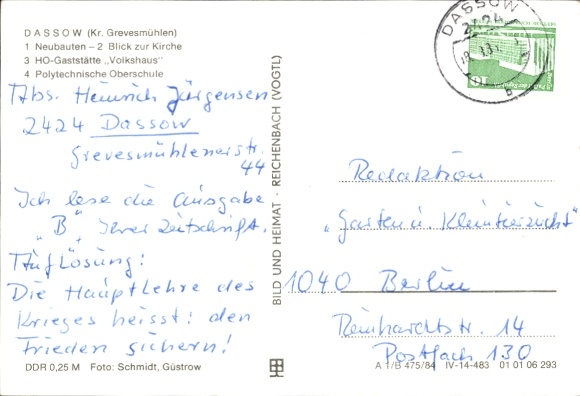 DASSOW (Kr. Grevesmühlen)
1 Neubauten – 2 Blick zur Kirche
3 HO-Gaststätte „Volkshaus"
4 Polytechnische Oberschule
Abs. Heinrich Jürgensen
2424 Dassow
Grevesmühlenerstr.
44
Ich lese die Ausgabe
„B" Ihrer Zeitschrift.
Auflösung:
Die Hauptlehre des
Krieges heisst: den
Frieden sichern!
DDR 0,25 M Foto: Schmidt, Güstrow
BILD UND HEIMAT · REICHENBACH (VOGTL)
DASSOW
2424
10
Redaktion
„Garten u. Kleintierzucht"
1040 Berlin
Reinhardtstr. 14
Postfach 130
A 1/B 475/84 IV-14-483 01 01 06 293